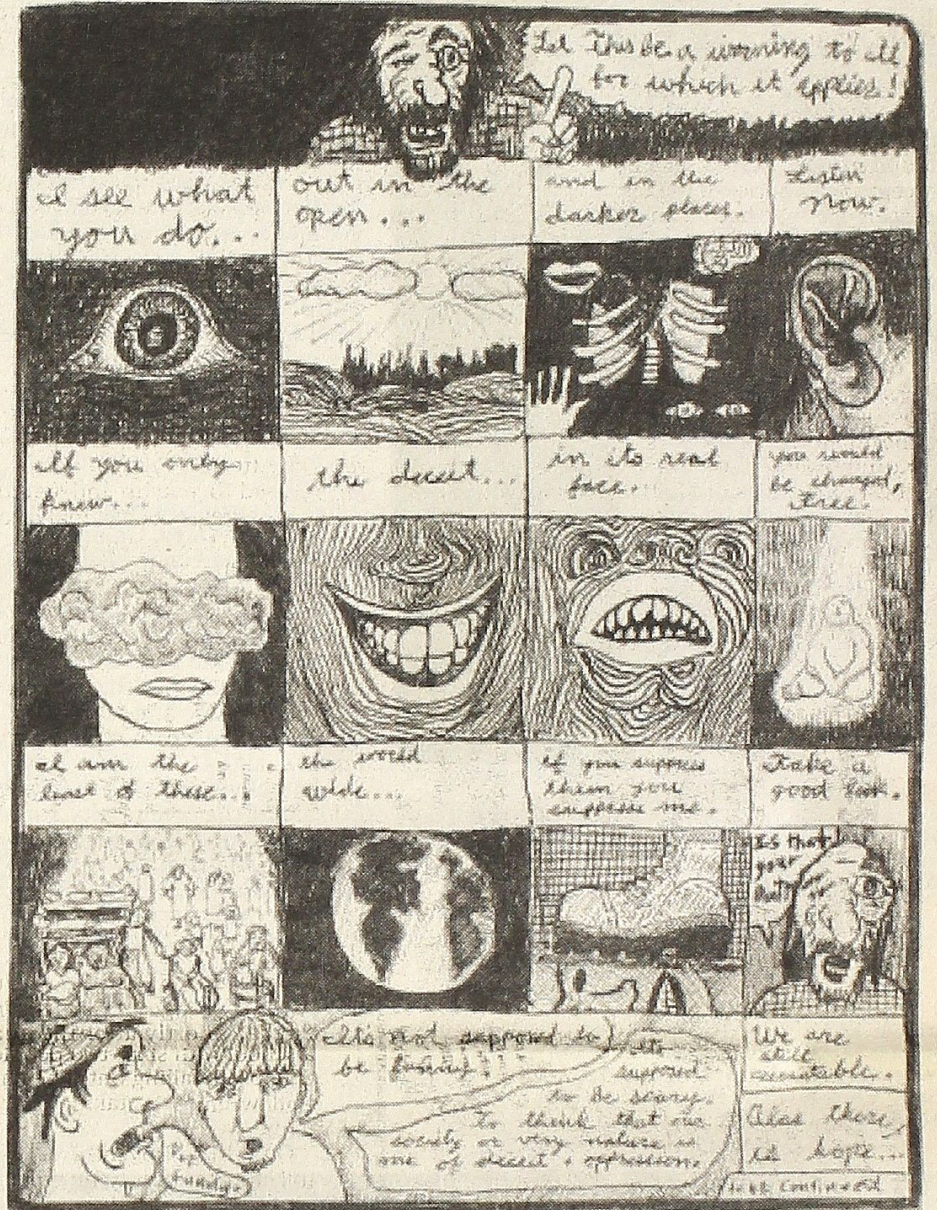 Let This be a warning to all
for which it applies!
I see what
you do...
out in the
open...
and in the
darker places.
Listen
now.
If you only
knew...
the deceit...
in its real
face.
you would
be changed,
free.
I am the
least of these...
the world
wide...
if you supress
them you
suppress me.
Take a
good look.
Is that
your
It's not supposed to
be funny.
its
supposed
to be scary.
To think that our
society or very nature is
one of deceit & oppression.
funny.
We are
still
accountable.
Alas there
is hope...
to be continued